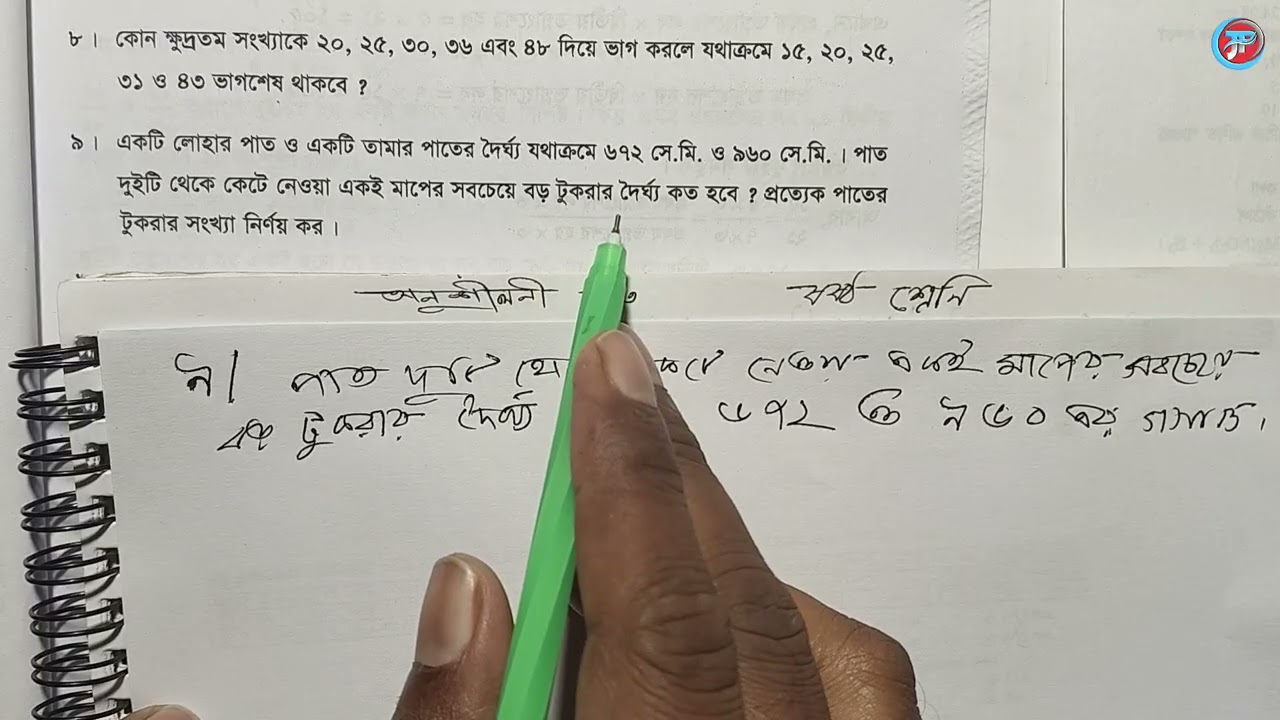 ৮। কোন ক্ষুদ্রতম সংখ্যাকে ২০, ২৫, ৩০, ৩৬ এবং ৪৮ দিয়ে ভাগ করলে যথাক্রমে ১৫, ২০, ২৫,
৩১ ও ৪৩ ভাগশেষ থাকবে ?
৯। একটি লোহার পাত ও একটি তামার পাতের দৈর্ঘ্য যথাক্রমে ৬৭২ সে.মি. ও ৯৬০ সে.মি. । পাত
দুইটি থেকে কেটে নেওয়া একই মাপের সবচেয়ে বড় টুকরার দৈর্ঘ্য কত হবে ? প্রত্যেক পাতের
টুকরার সংখ্যা নির্ণয় কর ।
অনুশীলনী ষষ্ঠ শ্রেনি
৯। পাত দুটি নেওয়া একই মাপের সবচেয়ে
বড় টুকরার দৈর্ঘ্য ৬৭২ ও ৯৬০ এর গসাগু।